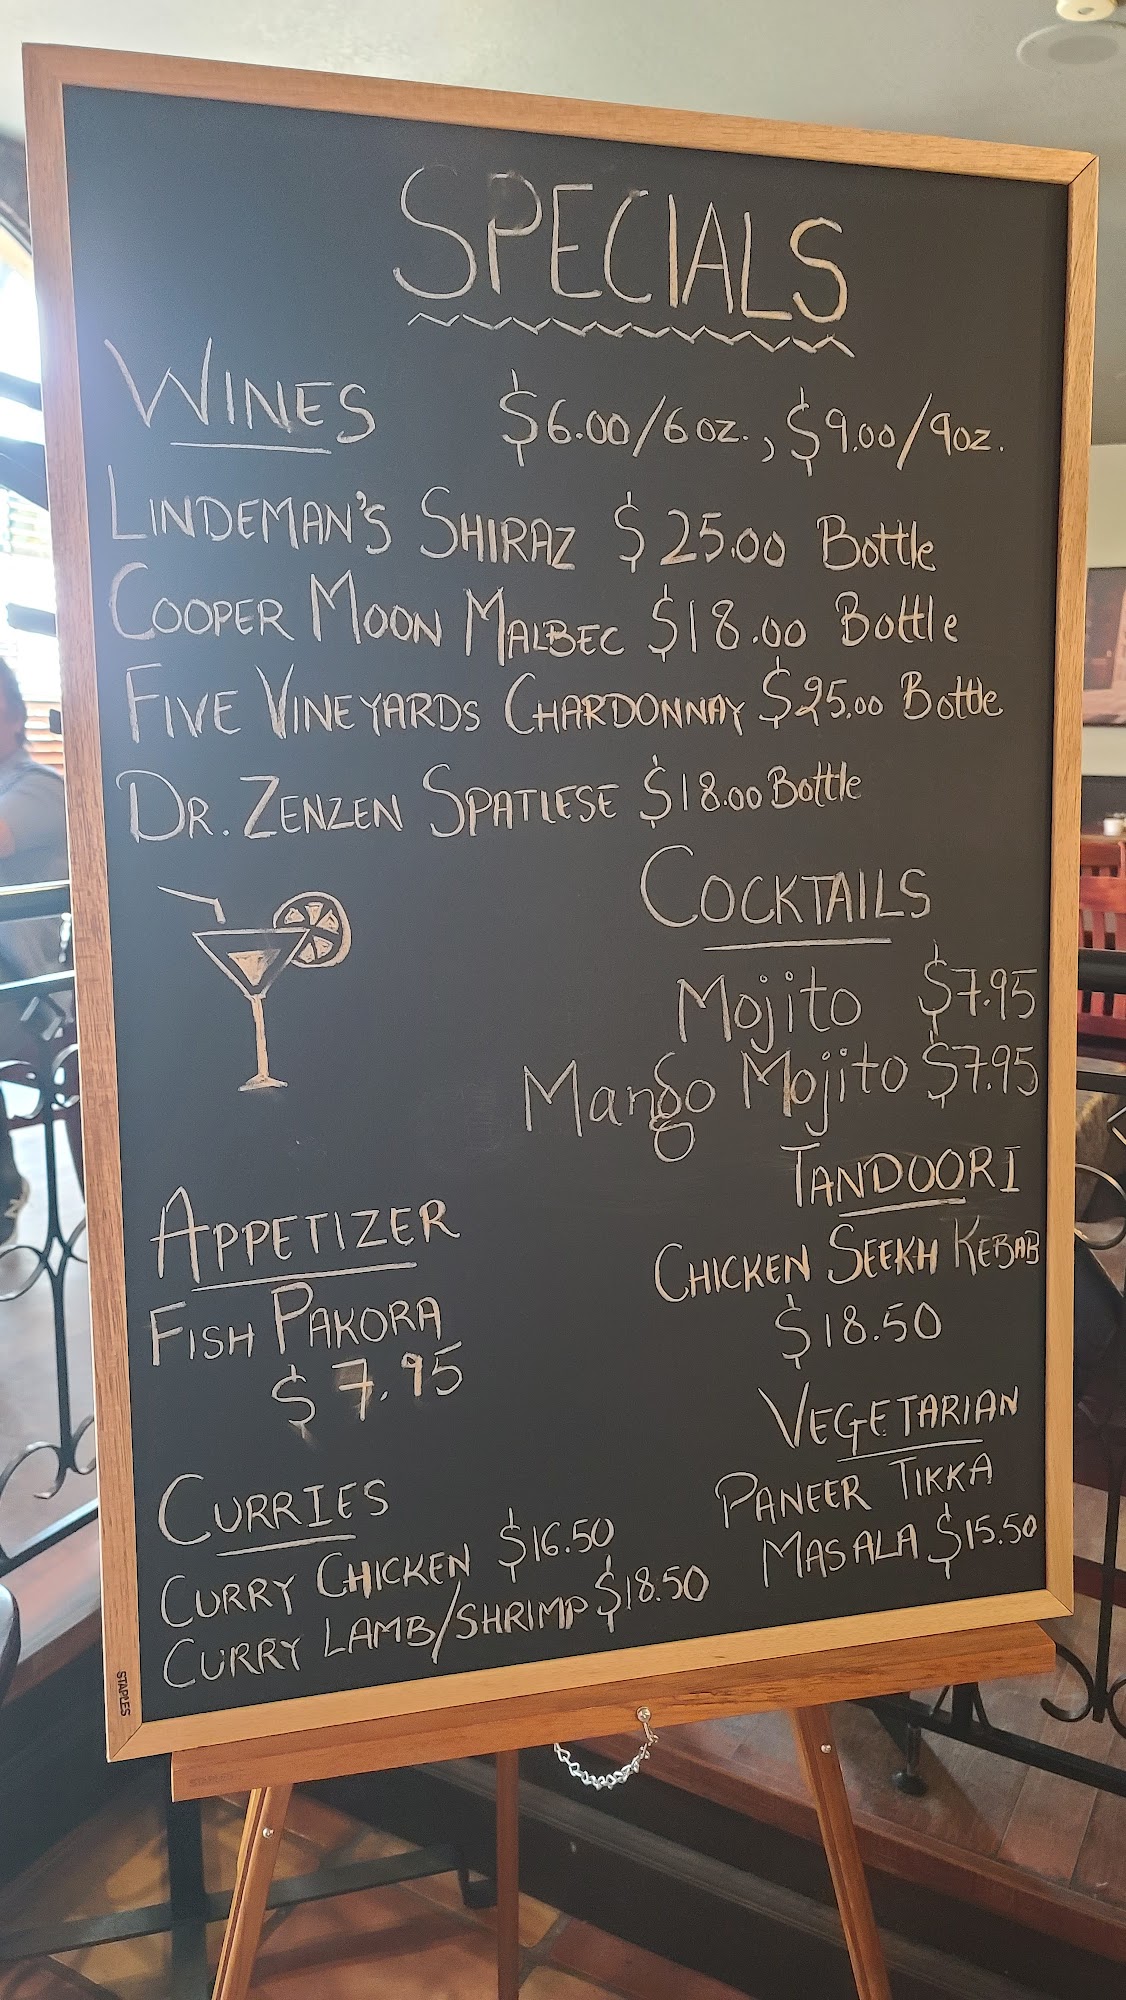 SPECIALS
WINES $6.00/6 oz., $9.00/9oz.
LINDEMAN'S SHIRAZ $25.00 Bottle
COOPER MOON MALBEC $18.00 Bottle
FIVE VINEYARDS CHARDONNAY $25.00 Bottle
DR. ZENZEN SPATLESE $18.00 Bottle
COCKTAILS
Mojito $7.95
Mango Mojito $7.95
APPETIZER
FISH PAKORA
$7.95
TANDOORI
CHICKEN SEEKH KEBAB
$18.50
CURRIES
CURRY CHICKEN $16.50
CURRY LAMB/SHRIMP $18.50
VEGETARIAN
PANEER TIKKA
MASALA $15.50
STAPLES
STAPLES